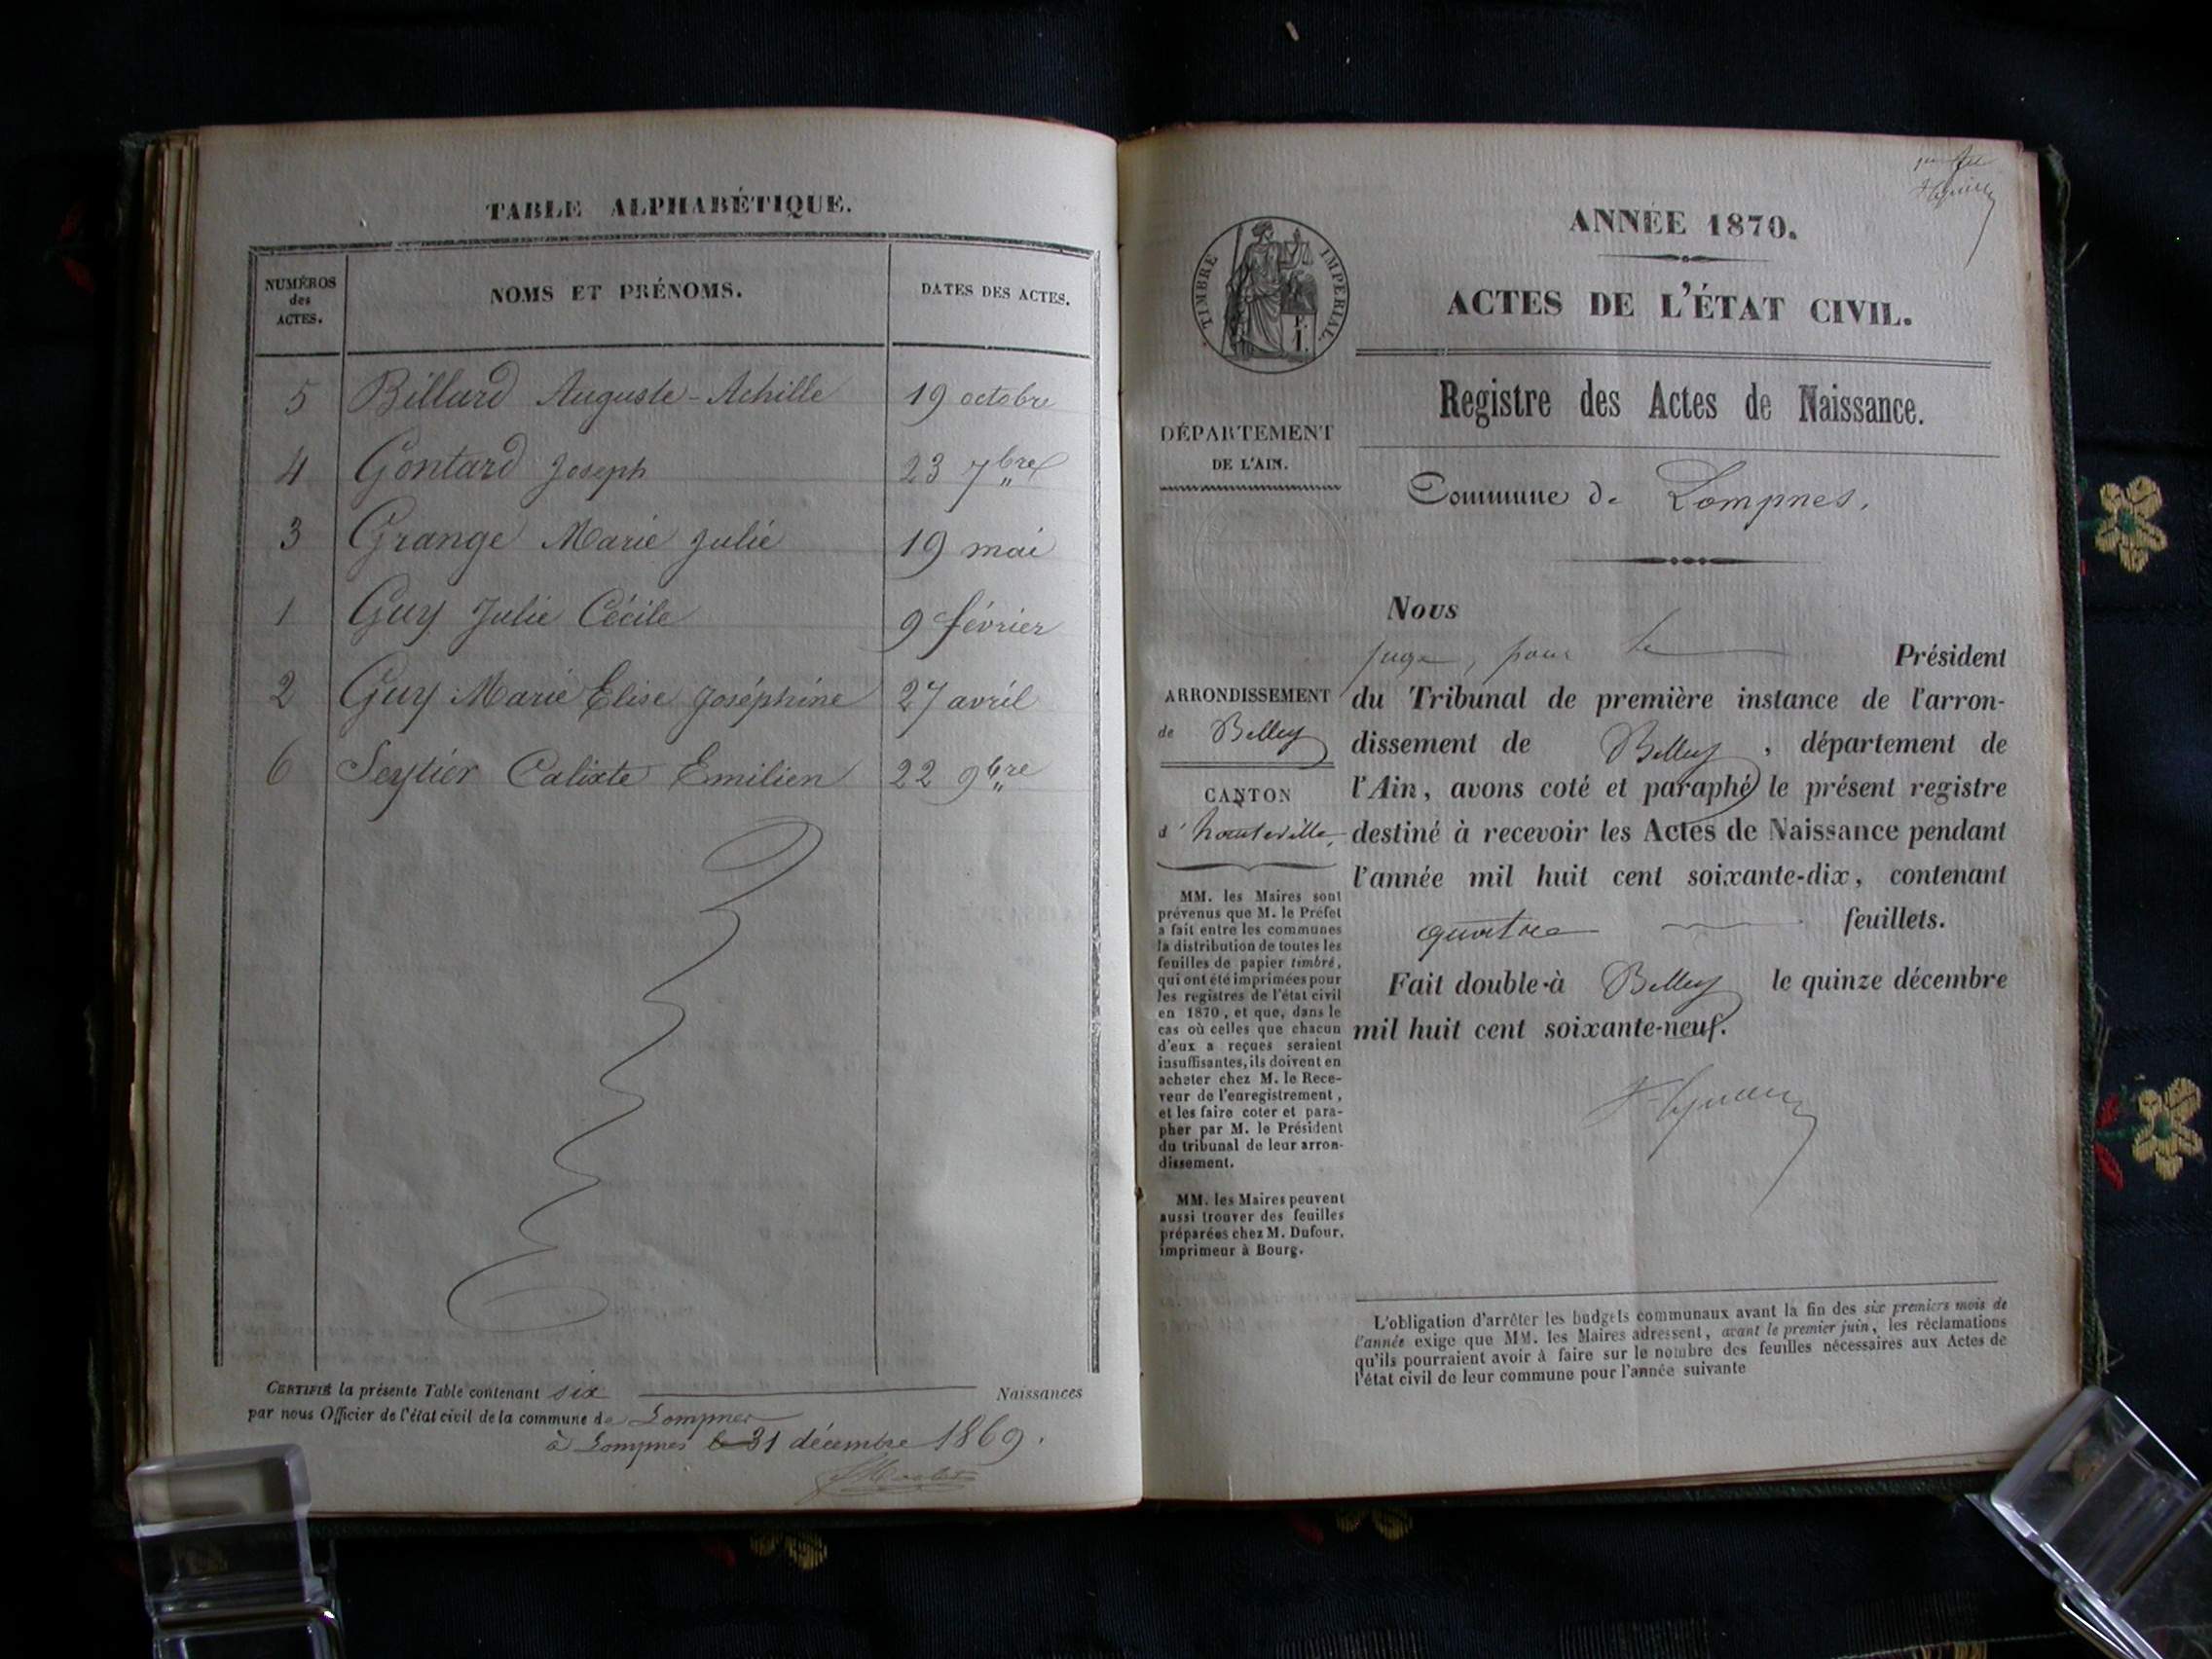 TABLE ALPHABÉTIQUE.
NUMÉROS
des
ACTES.
NOMS ET PRÉNOMS.
DATES DES ACTES.
5 Billard Auguste-Achille 19 octobre
4 Gontard Joseph 23 7bre
3 Grange Marie Julie 19 mai
1 Guy Julie Cécile 9 février
2 Guy Marie Elise Joséphine 27 avril
6 Seytier Calixte Emilien 22 9bre
CERTIFIÉ la présente Table contenant six Naissances
par nous Officier de l'état civil de la commune de Lompnes
à Lompnes le 31 décembre 1869.
ANNÉE 1870.
ACTES DE L'ÉTAT CIVIL.
TIMBRE IMPÉRIAL.
Registre des Actes de Naissance.
DÉPARTEMENT
DE L'AIN.
Commune de Lompnes.
ARRONDISSEMENT
de Belley
CANTON
d'hauteville,
MM. les Maires sont
prévenus que M. le Préfet
a fait entre les communes
la distribution de toutes les
feuilles de papier timbré,
qui ont été imprimées pour
les registres de l'état civil
en 1870, et que, dans le
cas où celles que chacun
d'eux a reçues seraient
insuffisantes, ils doivent en
acheter chez M. le Rece-
veur de l'enregistrement,
et les faire coter et para-
pher par M. le Président
du tribunal de leur arron-
dissement.
MM. les Maires peuvent
aussi trouver des feuilles
préparées chez M. Dufour,
imprimeur à Bourg.
Nous
juge, pour le Président
du Tribunal de première instance de l'arron-
dissement de Belley, département de
l'Ain, avons coté et paraphé le présent registre
destiné à recevoir les Actes de Naissance pendant
l'année mil huit cent soixante-dix, contenant
quatre feuillets.
Fait double à Belley le quinze décembre
mil huit cent soixante-neuf.
L'obligation d'arrêter les budgets communaux avant la fin des six premiers mois de
l'année exige que MM. les Maires adressent, avant le premier juin, les réclamations
qu'ils pourraient avoir à faire sur le nombre des feuilles nécessaires aux Actes de
l'état civil de leur commune pour l'année suivante